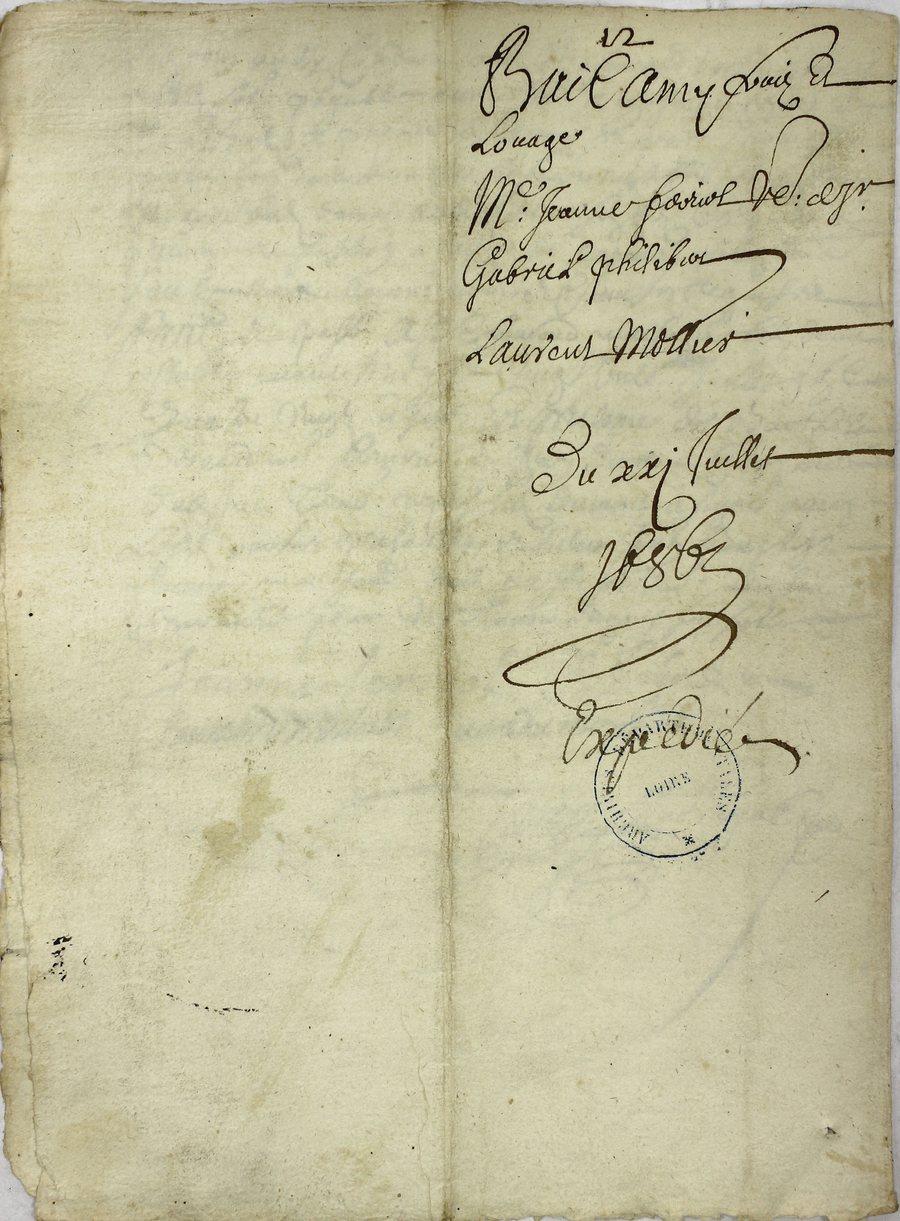 12
Bail amy fruiz Et
Louage
Me: Jeanne Ve: de Sr.
Gabriel philibert
Laurent Mollier
Du xxj Juillet
1686
Expedié
ARCHIVES DÉPARTEMENTALES
LOIRE